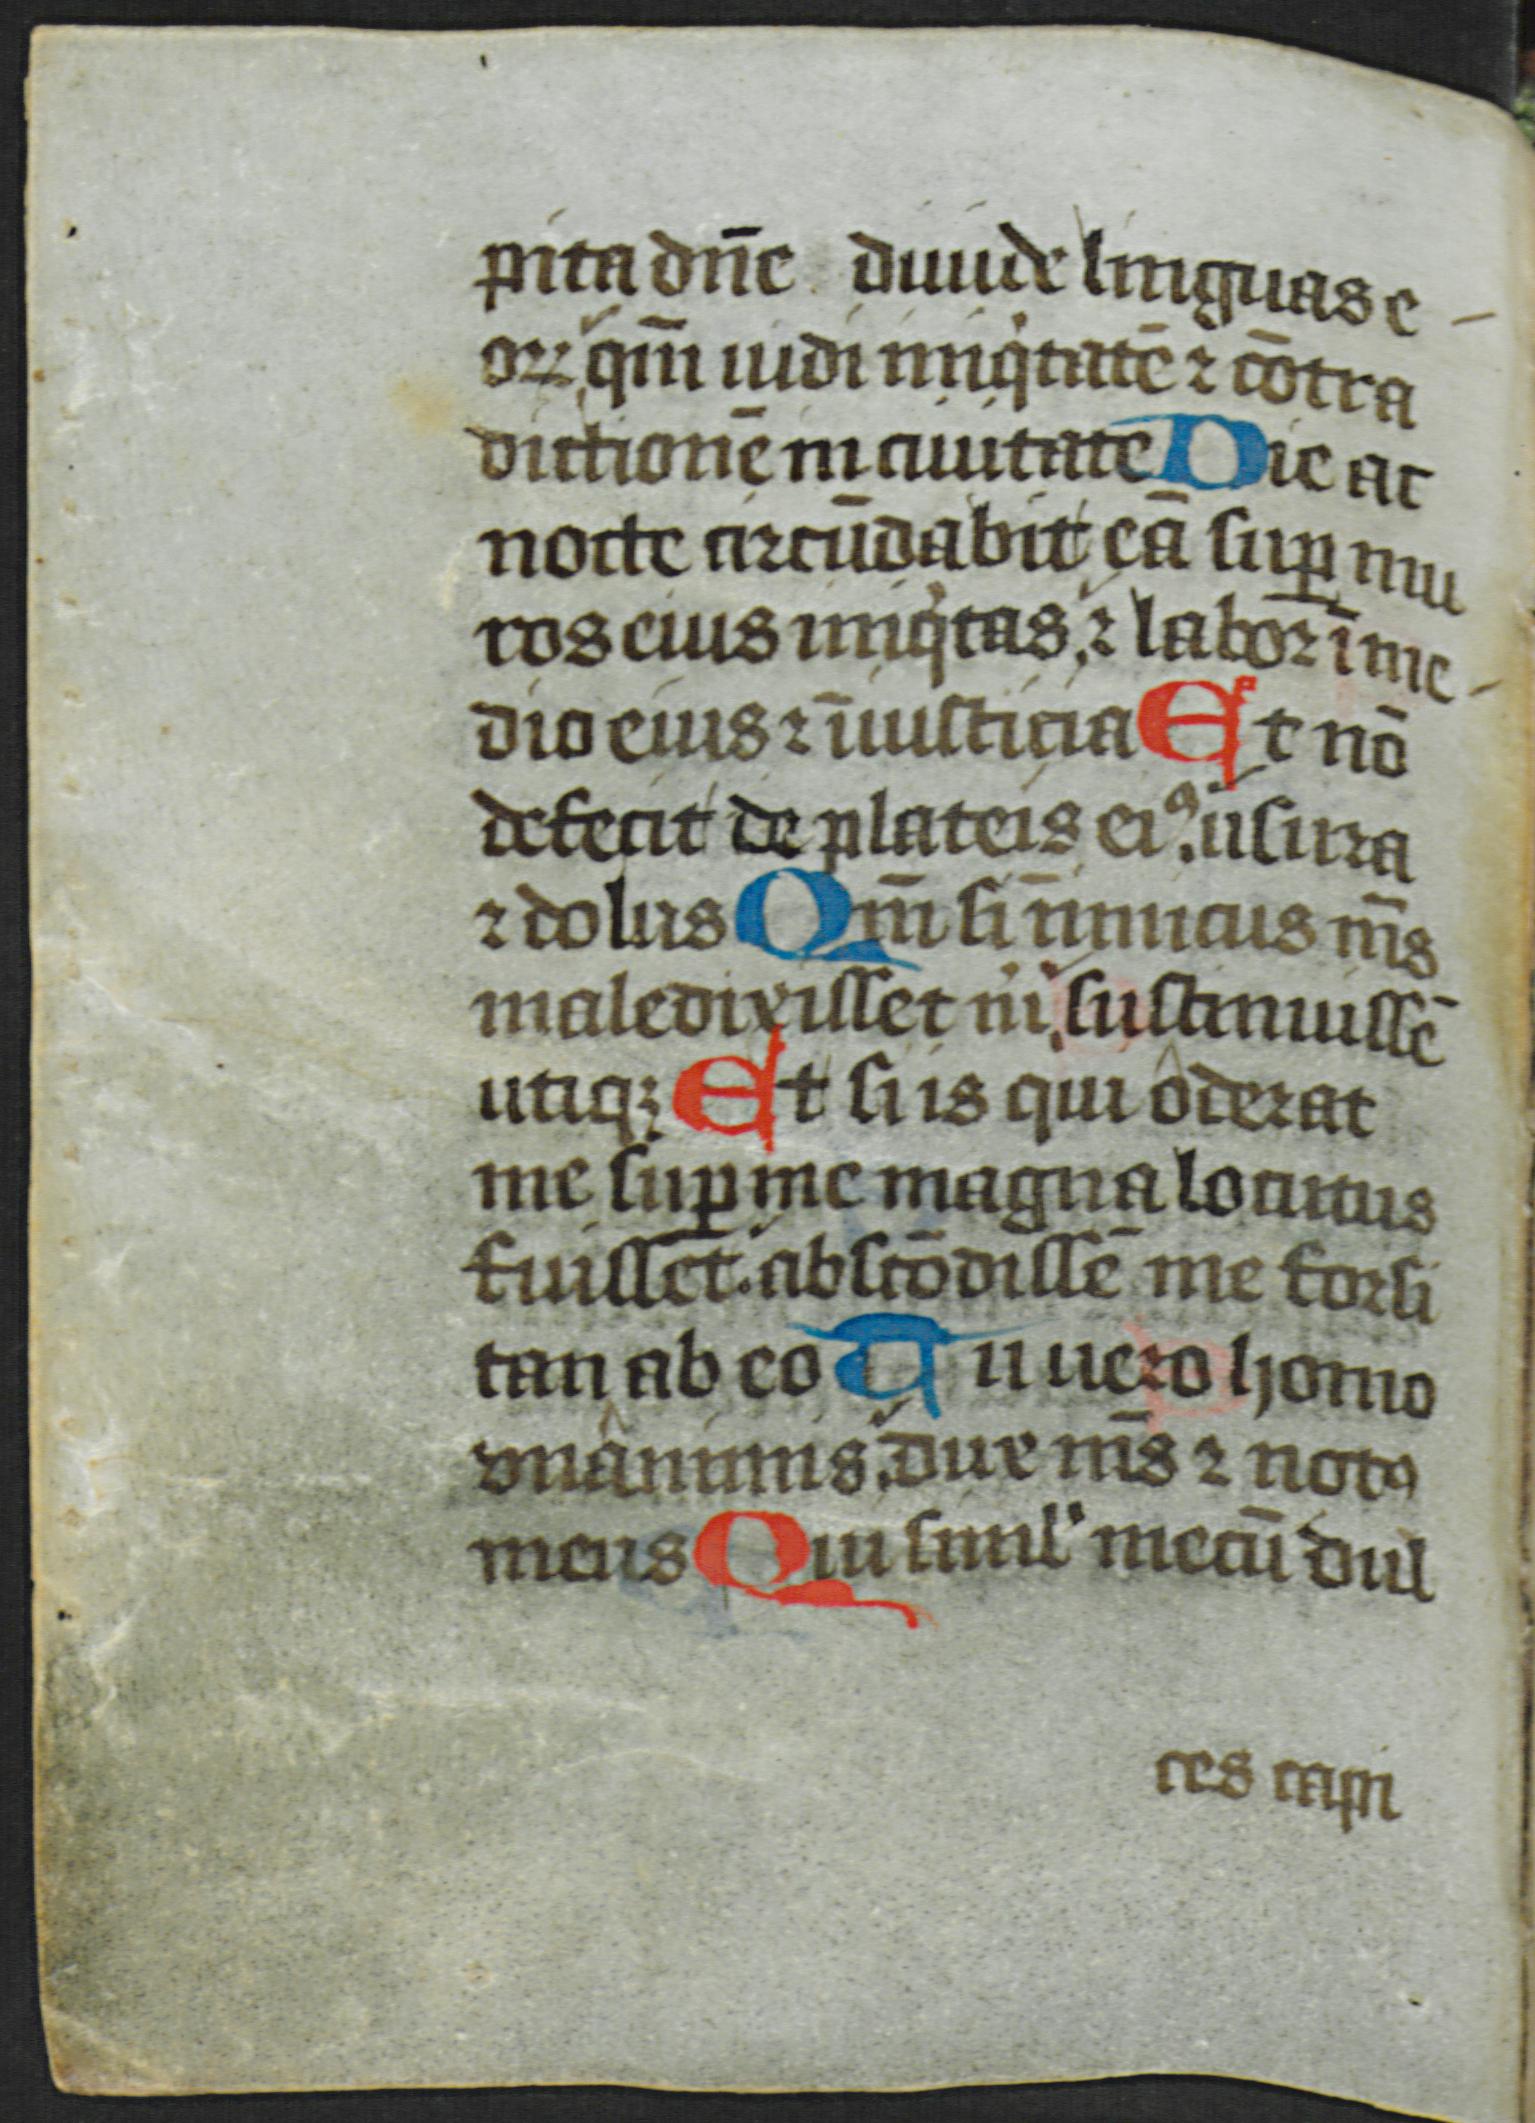 pita dn̄e diuide linguas e-
oꝝ qm̄ uidi iniqͥtatē ⁊ cōtra
dictionē in ciuitate Die ac
nocte circūdabit eā suꝑ mu
ros eius iniqͥtas, ⁊ labor ī me-
dio eius ⁊ īiusticia Et nō
defecit de plateis eiꝰ, usura
⁊ dolus Qm̄ si īnimicus m̄s
maledixisset mͥ, sustinuissē
utiqꝫ Et si is qui oderat
me suꝑ me magna locutus
fuisset. abscōdissē me forsi
tan ab eo Tu uero homo
vnanimis, dux m̄s ⁊ notꝰ
meus Qui simul mecū dul
ces capi